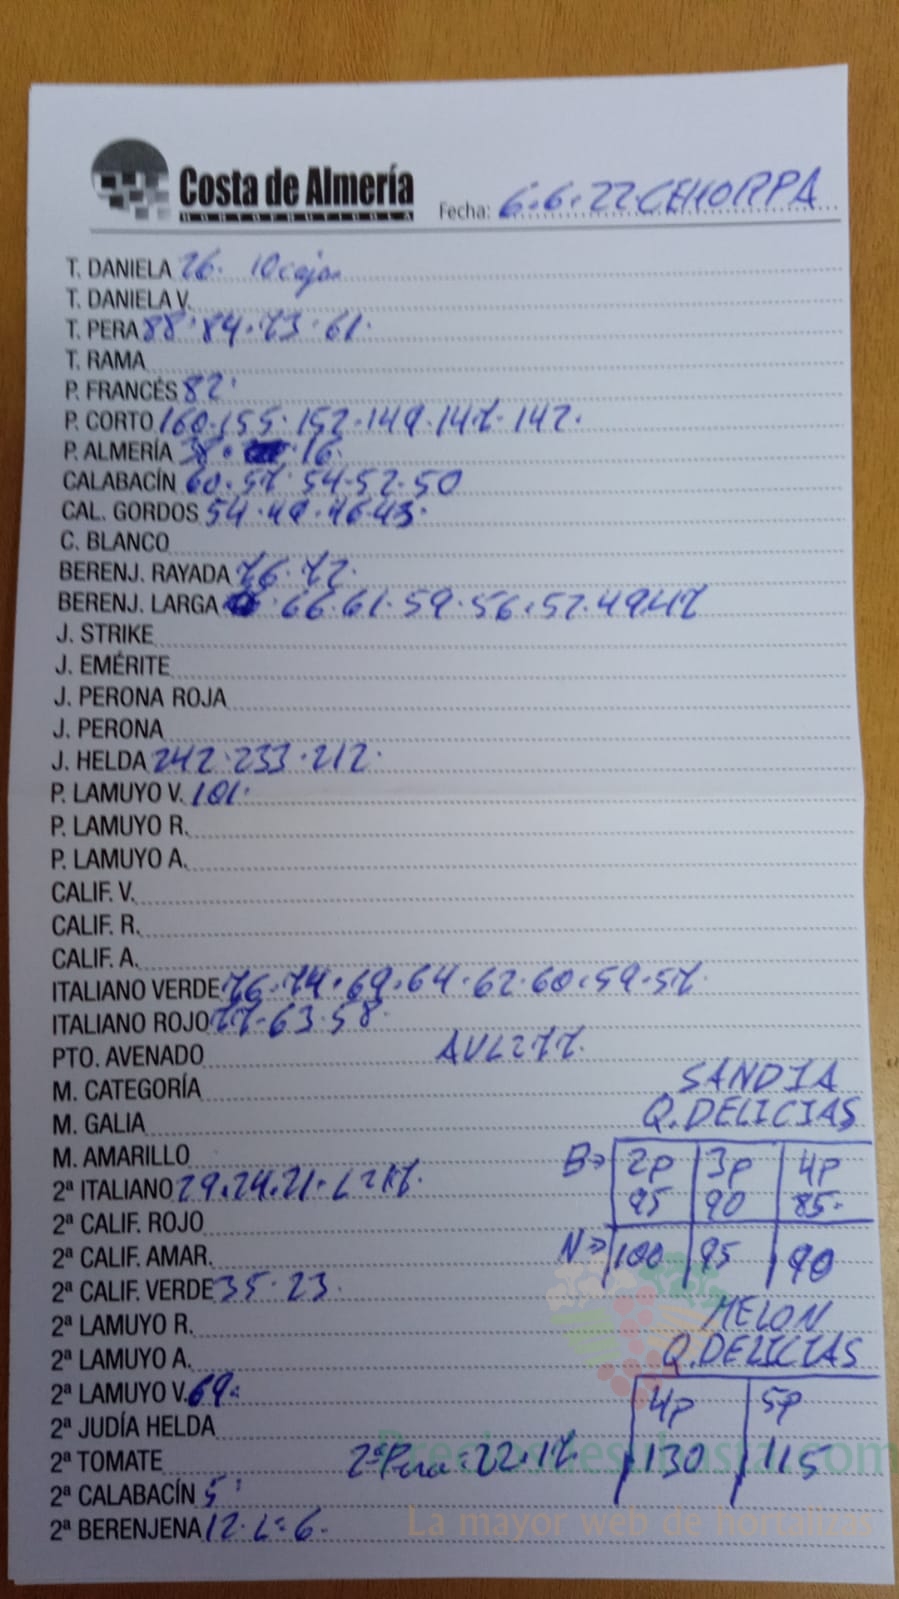 Costa de Almería
HORTOFRUTICOLA
Fecha: 6.6.22.CEHORPA
T. DANIELA 26. 10 cajas
T. DANIELA V.
T. PERA 88.84.73.61.
T. RAMA
P. FRANCÉS 82.
P. CORTO 160.155.152.149.147.142.
P. ALMERÍA 16.
CALABACÍN 60.57.54.52.50
CAL. GORDOS 54.49.46.43.
C. BLANCO
BERENJ. RAYADA 76.72.
BERENJ. LARGA 66.61.59.56.52.49.47
J. STRIKE
J. EMÉRITE
J. PERONA ROJA
J. PERONA
J. HELDA 242.233.212.
P. LAMUYO V. 101.
P. LAMUYO R.
P. LAMUYO A.
CALIF. V.
CALIF. R.
CALIF. A.
ITALIANO VERDE 76.74.69.64.62.60.59.57.
ITALIANO ROJO 77.63.58.
PTO. AVENADO AVL=77.
M. CATEGORÍA SANDIA
M. GALIA Q.DELICIAS
M. AMARILLO B→ 2p 3p 4p
2ª ITALIANO 29.24.21. L=17. 95 90 85.
2ª CALIF. ROJO
2ª CALIF. AMAR. N→ 100 95 90
2ª CALIF. VERDE 35.23.
2ª LAMUYO R. MELON
2ª LAMUYO A. Q.DELICIAS
2ª LAMUYO V. 69. 4p 5p
2ª JUDÍA HELDA
2ª TOMATE 2ª Pera=22.17. 130 115
Preciosdesubasta.com
2ª CALABACÍN 5.
2ª BERENJENA 12.L=6.
La mayor web de hortalizas